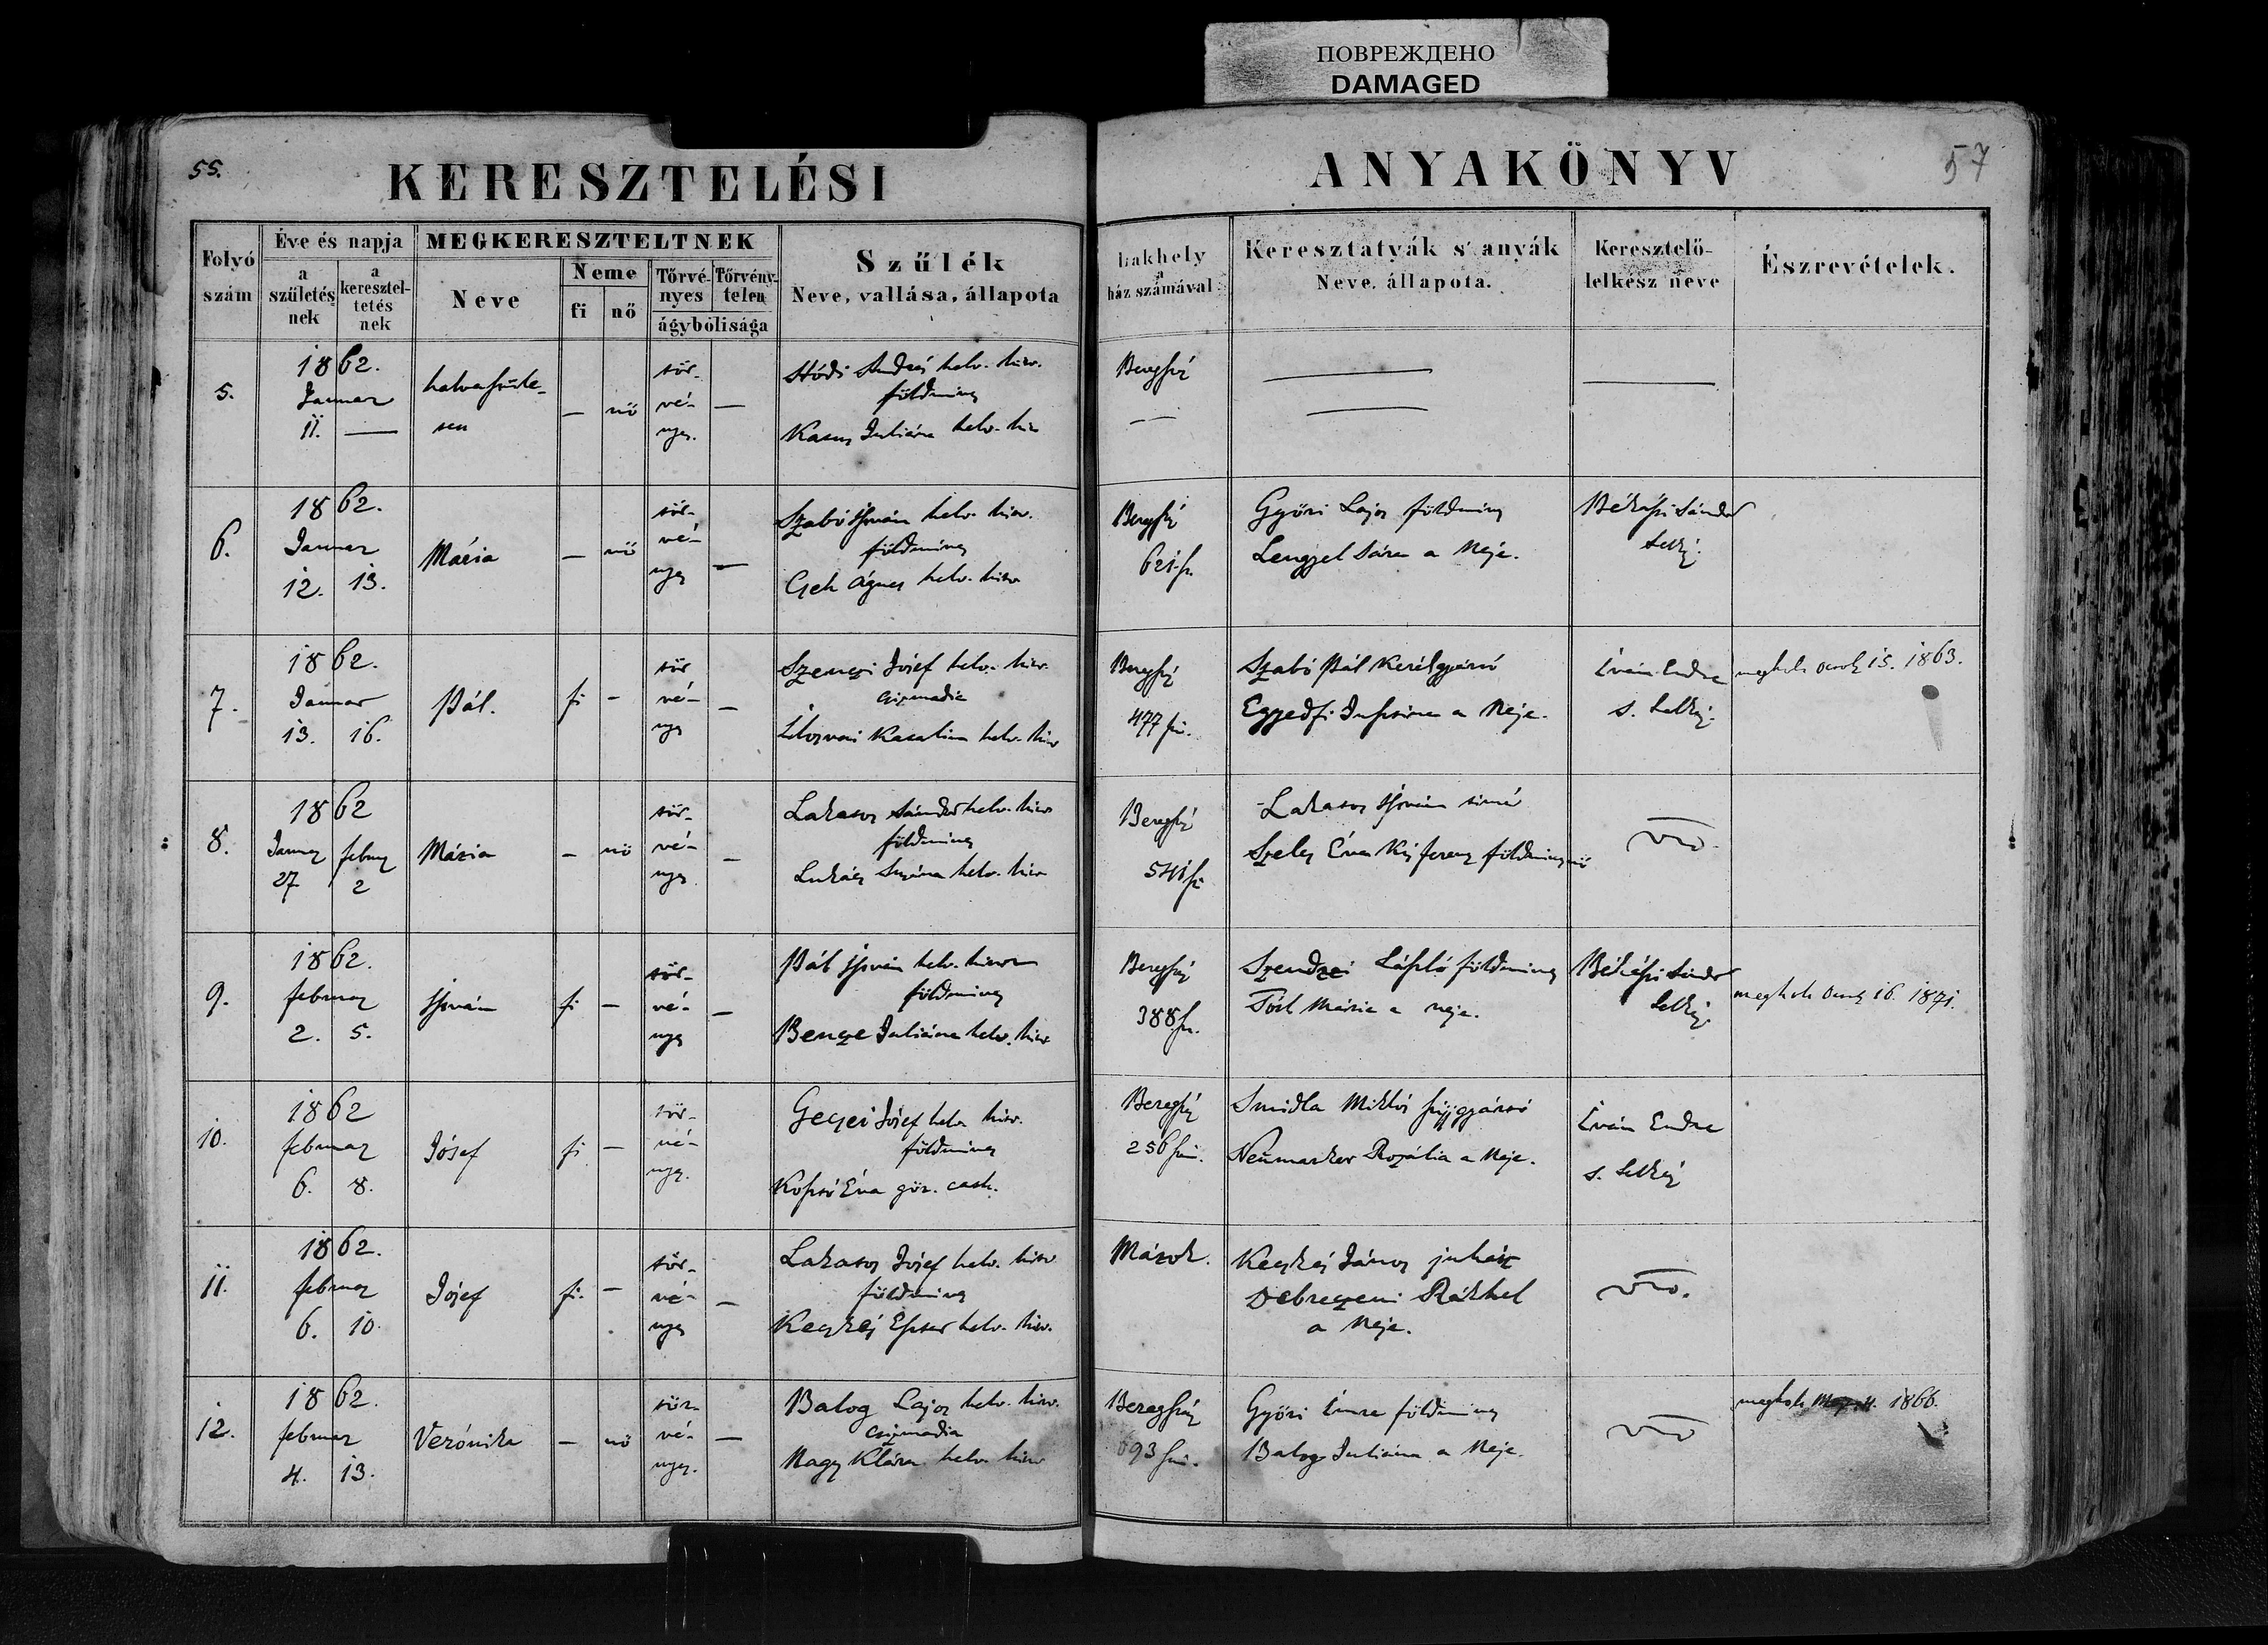 ПОВРЕЖДЕНО
DAMAGED
55.
KERESZTELÉSI
ANYAKÖNYV
57
Folyó szám
Éve és napja
a születés nek
a keresztel- tetés nek
MEGKERESZTELTNEK
Neve
Neme
fi
nő
Törvé- nyes
Törvény- telen
ágybólisága
Szűlék
Neve, vallása, állapota
Lakhely
a
ház számával
Keresztatyák s' anyák
Neve, állapota.
Keresztelő-
lelkész neve
Észrevételek.
5.
1862.
Januar
11. —
halvaszüle-
sen
— nő
tör-
vé- —
nyes.
Hódi András helv. hitv.
földmives
Juliána helv. hitv
Beregsz
6.
1862.
Januar
12. 13.
Mária
— nő
tör-
vé-
nyes —
Szabó István helv. hitv.
földmives
Cseh Ágnes helv. hitv
Beregsz
621. sz.
Győri Lajos földmives
Lengyel Sára a Neje.
Békássi Sándor
Lelkész.
7.
1862.
Januar
13. 16.
Pál.
fi —
tör
vé- —
nyes
Szenczi Jósef helv. hitv.
csizmadia
Ilosvai Katalina helv. hitv
Beregsz
477 szá.
Szabó Pál Kerékgyártó
Egyedfi Zsuzsána a Neje.
Iván Endre
s. Lelkész.
meghalt 15. 1863.
8.
1862
Januar februar
27 2
Mária
— nő
tör-
vé- —
nyes
Lakatos Sándor helv. hitv
földmives
Lukács Susána helv. hitv
Beregsz
541 sz
Lakatos István
Szeles Éva Kis Ferencz földmives nő
9.
1862.
februar
2. 5.
István
fi —
tör-
vé- —
nyes
Pál István helv. hitv
földmives
Bencze Juliána helv. hitv
Beregsz
388 sz.
Szendrei László földmives
Tóth Mária a neje.
Békássi Sándor
Lelkész.
meghalt 16. 1871.
10.
1862
februar
6. 8.
Jósef
fi —
tör-
vé-
nyes.
Geczei Jósef helv. hitv.
földmives
Éva gör. cath.
Beregsz
256 szá.
Smidla Miklós szijgyártó
Neumarker Rozália a Neje.
Iván Endre
s. Lelkész
11.
1862.
februar
6. 10.
Jósef
fi. —
tör-
vé- —
nyes
Lakatos Jósef helv. hitv
földmives
Kecskés Eszter helv. hitv.
Márok.
Kecskés János juhász
Debreczeni Rákhel
a Neje.
12.
1862.
februar
4. 13.
Verónika
— nő
tör-
vé- —
nyes.
Balog Lajos helv. hitv.
csizmadia
Nagy Klára helv. hitv
Beregszá
93 szá.
Győri Imre földmives
Balog Juliána a Neje.
meghalt 1866.